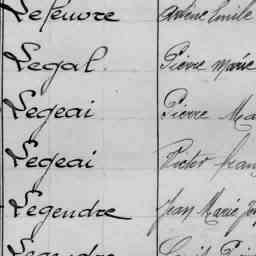 Lefeuvre Arsène Emile
Legal. Pierre Marie
Legeai Pierre Ma
Legeai Victor Fran
Legendre Jean Marie Jos
Legendre Louis Pie